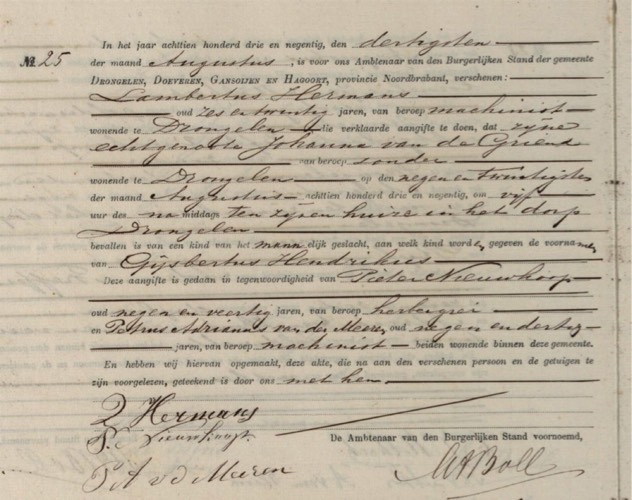 № 25
In het jaar achttien honderd drie en negentig, den dertigsten
der maand Augustus, is voor ons Ambtenaar van den Burgerlijken Stand der gemeente
DRONGELEN, DOEVEREN, GANSOIJEN EN HAGOORT, provincie Noordbrabant, verschenen:
Lambertus Hermans
oud zes en twintig jaren, van beroep machinist
wonende te Drongelen die verklaarde aangifte te doen, dat zijne
echtgenoote Johanna van de Griend
van beroep zonder
wonende te Drongelen op den negen en twintigsten
der maand Augustus achttien honderd drie en negentig, om vijf
uur des na middags ten zijnen huize in het dorp
Drongelen
bevallen is van een kind van het mannelijk geslacht, aan welk kind worden gegeven de voornamen
van Gijsbertus Hendrikus
Deze aangifte is gedaan in tegenwoordigheid van Pieter Nieuwkoop
oud negen en veertig jaren, van beroep herbergier
en Petrus Adrianus van der Meeren, oud negen en dertig
jaren, van beroep machinist beiden wonende binnen deze gemeente.
En hebben wij hiervan opgemaakt, deze akte, die na aan den verschenen persoon en de getuigen te
zijn voorgelezen, geteekend is door ons met hen.
L Hermans
P. Nieuwkoop
De Ambtenaar van den Burgerlijken Stand voornoemd,
P A v d Meeren